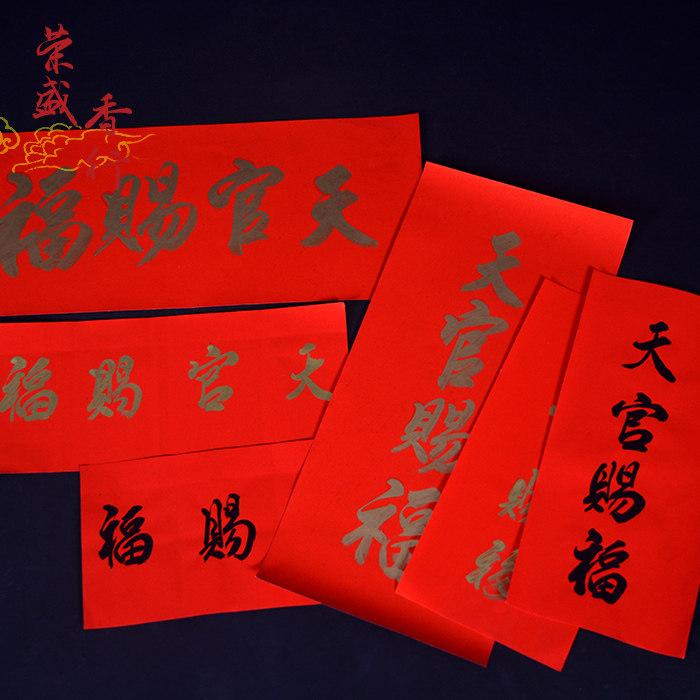 荣盛
香
天官賜福
天官賜福
賜福
天官賜福
賜福
天官賜福